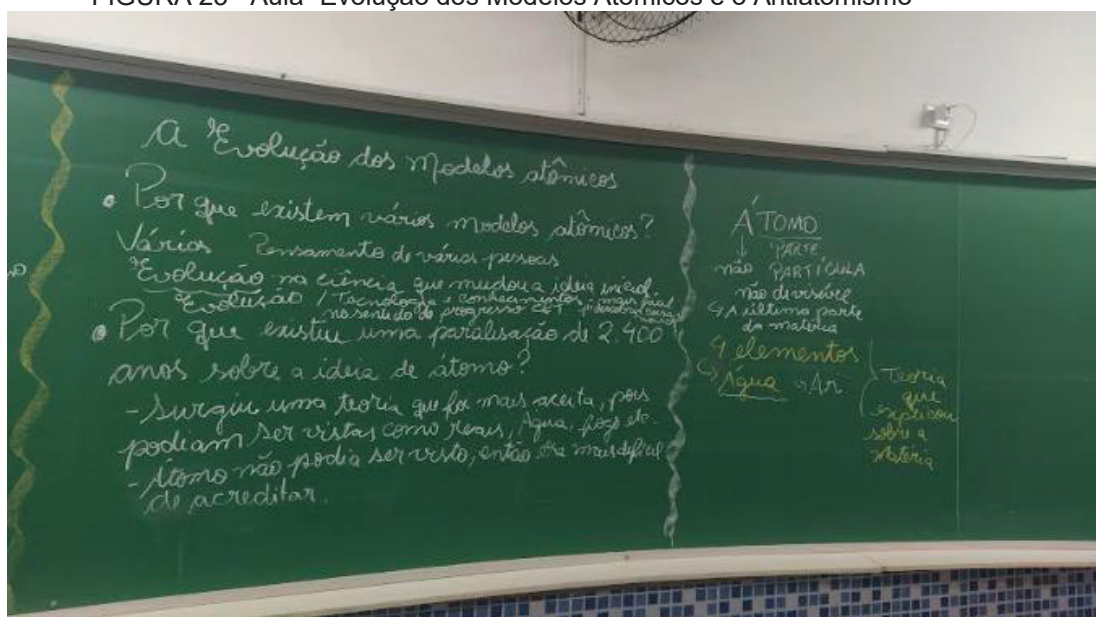 FIGURA 28 - Aula "Evolução dos Modelos Atômicos e o Antiatomismo"
A Evolução dos Modelos atômicos
• Por que existem vários modelos atômicos?
Vários Pensamento de várias pessoas
Evolução na ciência que mudou a ideia inicial
Evolução / Tecnologia e conhecimentos - mais fácil
no sentido do progresso CeT
• Por que existiu uma paralisação de 2.400
anos sobre a ideia de átomo?
- Surgiu uma teoria que foi mais aceita, pois
podiam ser vistas como reais, Água, fogo etc.
- Átomo não podia ser visto, então era mais difícil
de acreditar.
ÁTOMO
↓ PARTE
não PARTÍCULA
não divisível
↳ A última parte
da matéria
4 elementos
↳ Água → Ar
Teoria
que
explicou
sobre a
Matéria